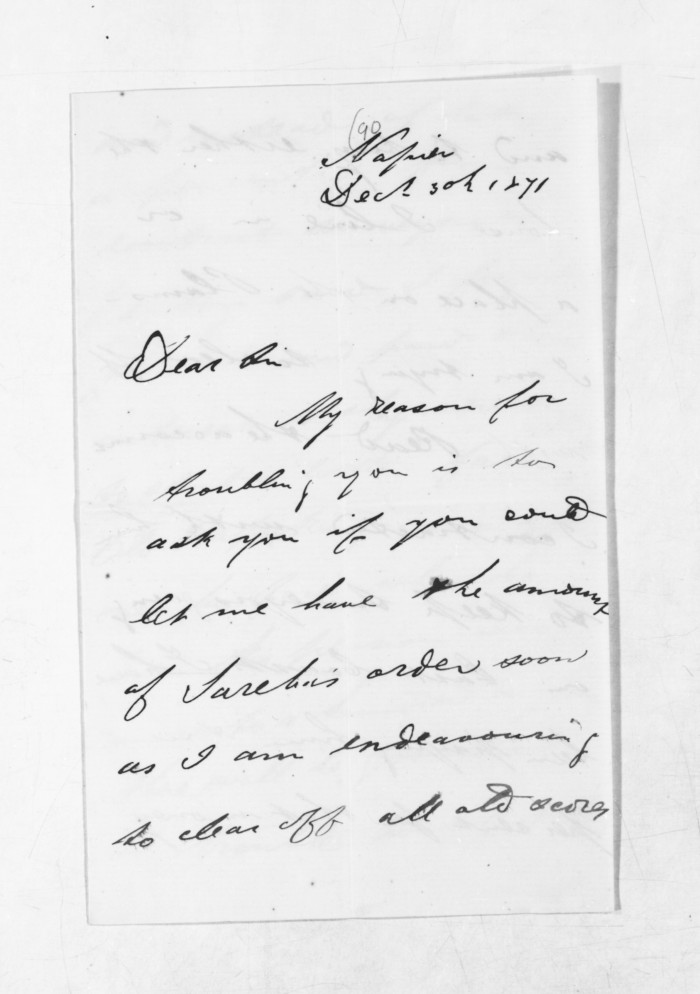 (90
Napier
Dech 30th 1871
Dear Sir
My reason for
troubling you is to
ask you if you could
let me have the amount
of Tareha's order soon
as I am endeavouring
to clear off all old scores